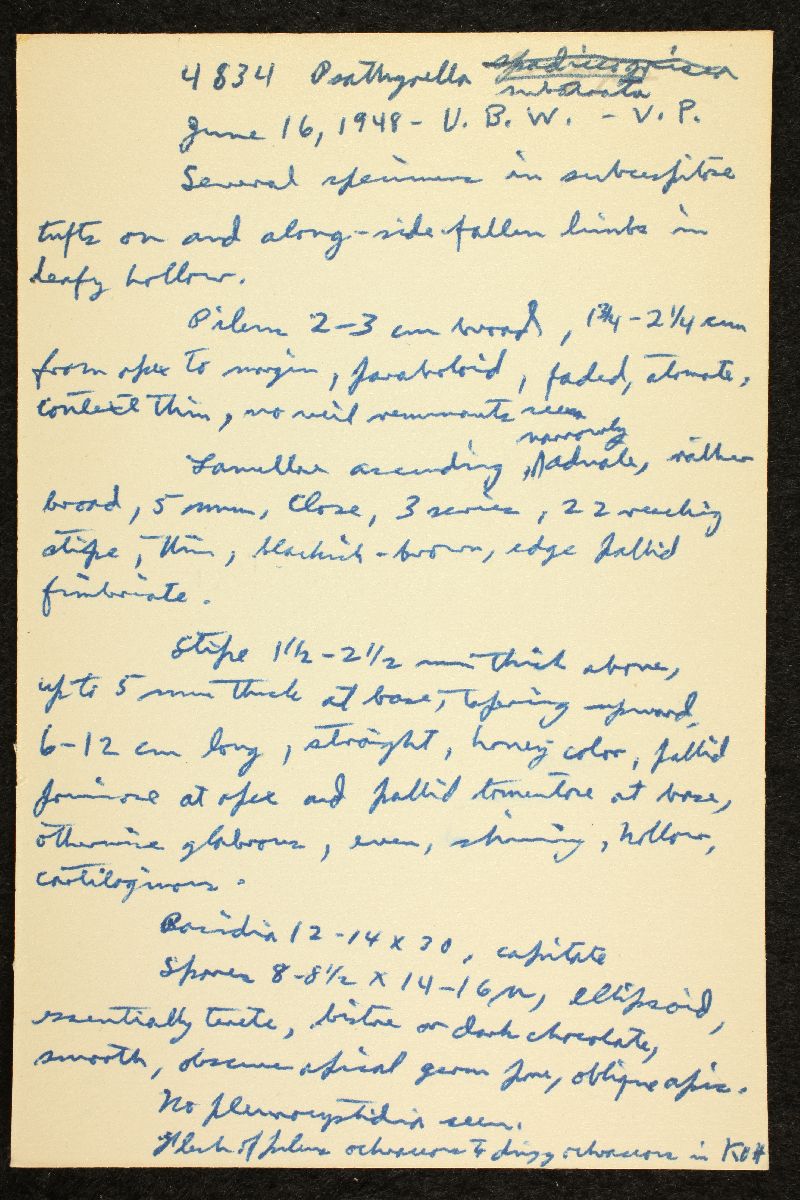 4834 Psathyrella spadiceogrisea
subatrata
June 16, 1948 - U. B. W. - V. P.
Several specimens in subcespitose
tufts on and along-side fallen limbs in
leafy hollow.
Pileus 2-3 cm broad, 1 3/4 - 2 1/4 cm
from apex to margin, paraboloid, faded, atomate,
context thin, no veil remnants seen
narrowly
Lamellae ascending, ∧adnate, rather
broad, 5 mm, close, 3 series, 22 reaching
stipe, thin, blackish-brown, edge pallid
fimbriate.
Stipe 1 1/2 - 2 1/2 mm thick above,
up to 5 mm thick at base, tapering upward,
6-12 cm long, straight, honey color, pallid
pruinose at apex and pallid tomentose at base,
otherwise glabrous, even, shining, hollow,
cartilaginous.
Basidia 12-14 x 30, capitate
Spores 8-8 1/2 x 14-16 μ, ellipsoid,
essentially terete, bistre or dark chocolate,
smooth, obscure apical germ pore, oblique apic.
No pleurocystidia seen.
Flesh of pileus ochraceous to dingy ochraceous in KOH